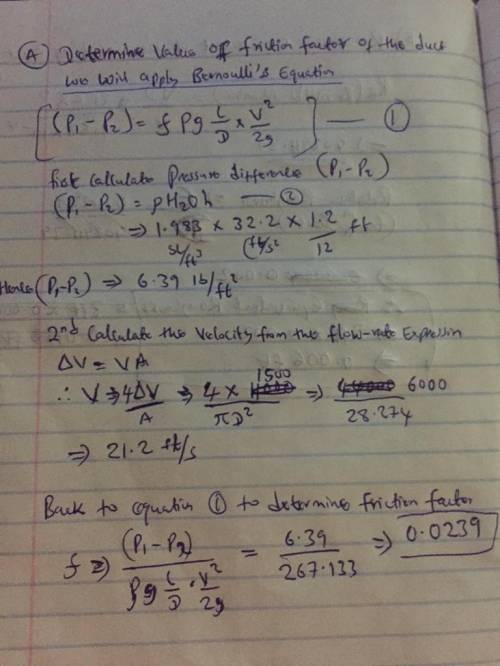 (A) Determine Value off friction factor of the duct
we will apply Bernoulli's Equation
[(P₁-P₂) = f ρg L/D × V²/2g] — (1)
first Calculate Pressure difference (P₁-P₂)
(P₁-P₂) = ρH₂O h — (2)
⇒ 1.983 × 32.2 × 1.2/12 ft
sl/ft³ (ft/s²
Hence (P₁-P₂) ⇒ 6.39 lb/ft²
2nd Calculate the Velocity from the flow-rate Expression
ΔV = VA
∴ V ⇒ 4ΔV/A ⇒ 4 × 1500/πD² ⇒ 6000/28.274
⇒ 21.2 ft/s
Back to equation (1) to determine friction factor
f ⇒ (P₁-P₂)/ρg L/D · V²/2g = 6.39/267.133 ⇒ 0.0239